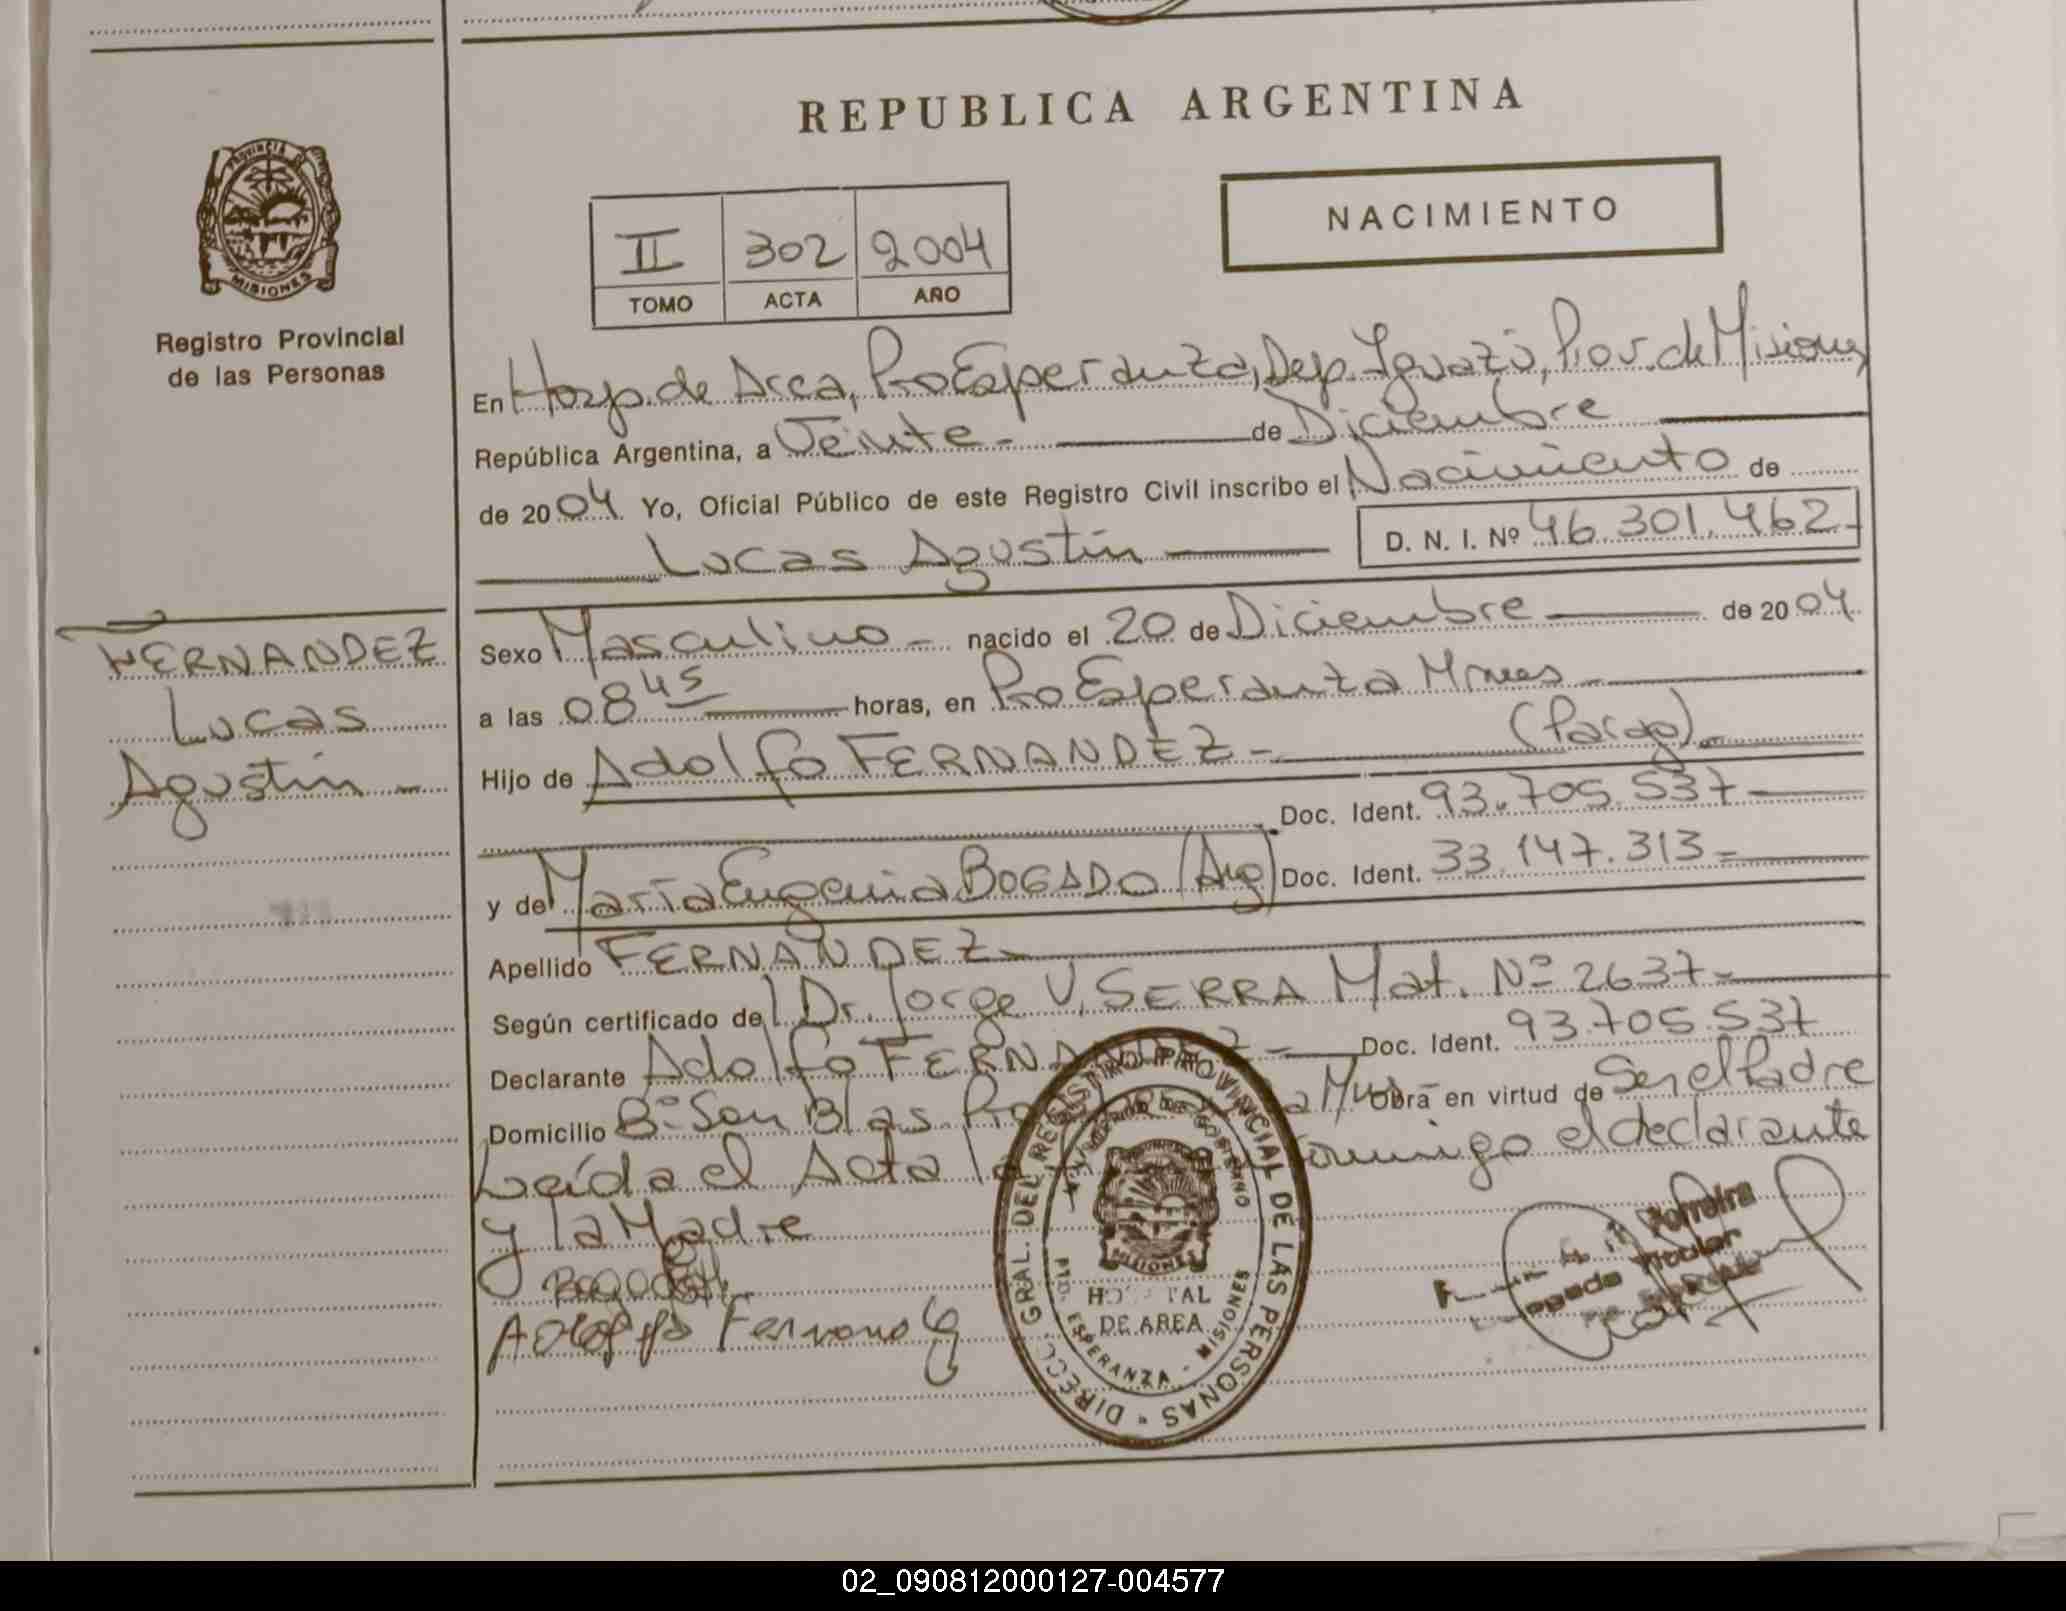 REPUBLICA ARGENTINA
PROVINCIA DE MISIONES
Registro Provincial
de las Personas
II 302 2004
TOMO ACTA AÑO
NACIMIENTO
En Hosp. de Area, Pto Esperanza, Dep. Iguazú, Prov. de Misiones
República Argentina, a Veinte - de Diciembre
de 2004 Yo, Oficial Público de este Registro Civil inscribo el Nacimiento de
Lucas Agustín
D. N. I. Nº 46.301.462-
FERNANDEZ
Lucas
Agustín -
Sexo Masculino - nacido el 20 de Diciembre de 2004
a las 08 45 horas, en Pto Esperanza Mnes -
Hijo de Adolfo FERNANDEZ - (Parag) -
Doc. Ident. 93.705.537-
y de María Eugenia BOGADO (Arg) Doc. Ident. 33.147.313-
Apellido FERNANDEZ -
Según certificado del Dr. Jorge V. SERRA Mat. Nº 2637-
Declarante Adolfo FERNANDEZ - Doc. Ident. 93.705.537
Domicilio Bº San Blas Pto Mnes Obra en virtud de Ser el Padre
Leída el Acta la conmigo el declarante
y la Madre
Adolfo Fernandez
Ferreira
DIRECC. GRAL. DEL REGISTRO PROVINCIAL DE LAS PERSONAS
MINISTERIO DE GOBIERNO
MISIONES
HOSPITAL
DE AREA
PTO. ESPERANZA - MISIONES
02_090812000127-004577